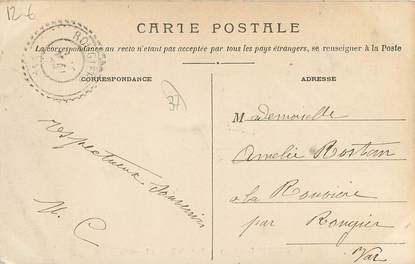 12-6
CARTE POSTALE
La correspondance au recto n'étant pas acceptée par tous les pays étrangers, se renseigner à la Poste
ROUGIE
CORRESPONDANCE
ADRESSE
37
Respectueux Souvenir
Mademoiselle
Amélie Rostan
à la Rouvière
par Rougier
Var